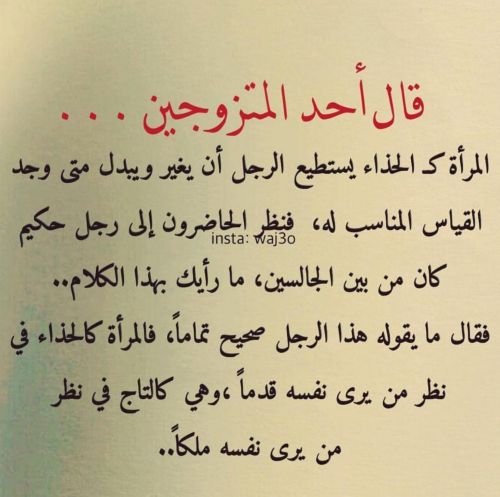 قال أحد المتزوجين . . .
المرأة كـ الحذاء يستطيع الرجل أن يغير ويبدل متى وجد
القياس المناسب له، فنظر الحاضرون إلى رجل حكيم
insta: waj3o
كان من بين الجالسين، ما رأيك بهذا الكلام..
فقال ما يقوله هذا الرجل صحيح تماماً، فالمرأة كالحذاء في
نظر من يرى نفسه قدماً ،وهي كالتاج في نظر
من يرى نفسه ملكاً..